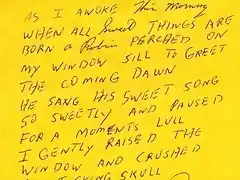 AS I AWOKE This Morning
WHEN ALL Sweet THINGS ARE
BORN A Robin PERCHED ON
MY WINDOW SILL TO GREET
THE COMING DAWN
HE SANG HIS SWEET SONG
SO SWEETLY AND PAUSED
FOR A MOMENTS LULL
I GENTLY RAISED THE
WINDOW AND CRUSHED
SKULL